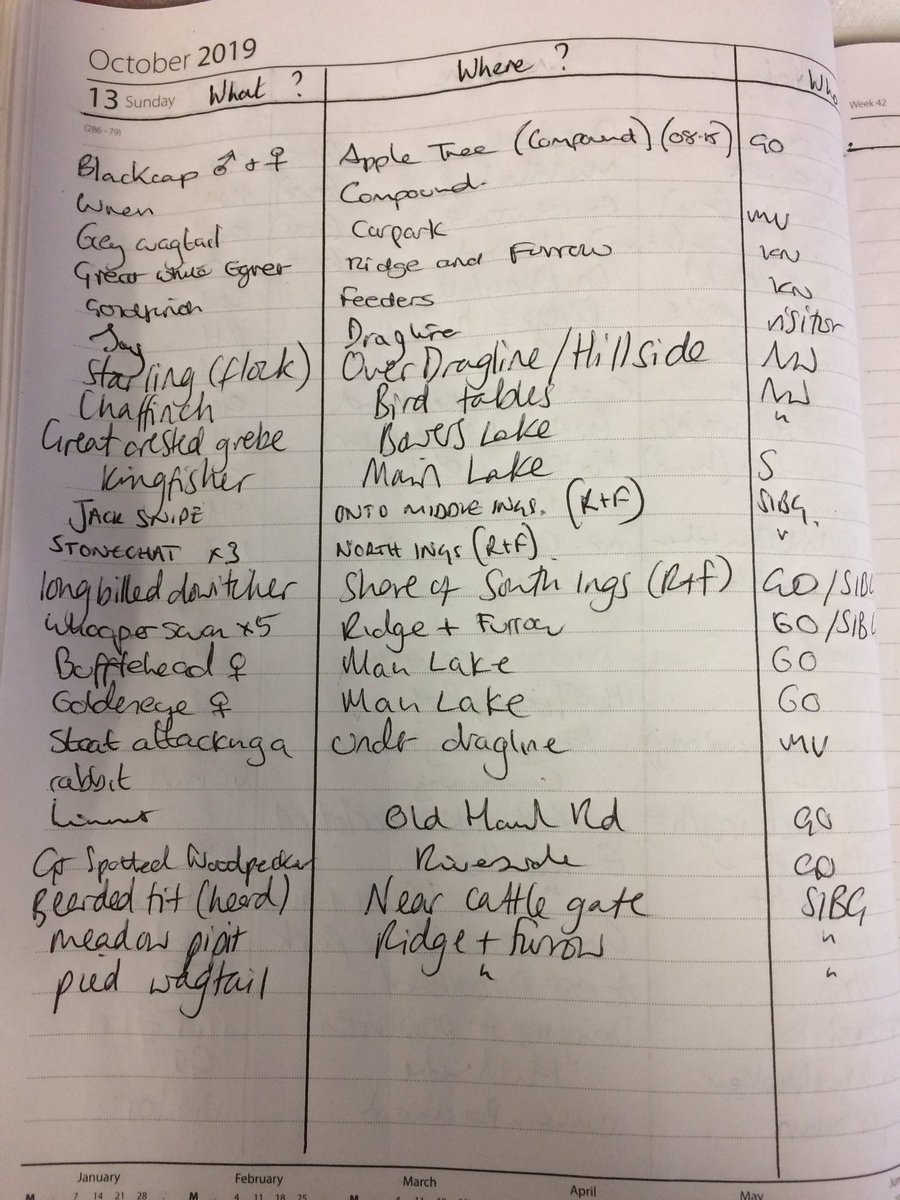 October 2019
13 Sunday What ? Where ? Who
Week 42
(286 - 79)
Blackcap ♂ + ♀ Apple Tree (Compound) (08.15) GO
Wren Compound.
Grey wagtail Carpark MV
Great white Egret Ridge and Furrow KN
Goldfinch Feeders KN
Jay Dragline visitor
Starling (flock) Over Dragline / Hillside MJ
Chaffinch Bird tables MJ
Great crested grebe Bowers Lake "
Kingfisher Main Lake S
JACK SNIPE ONTO MIDDLE INGS. (R+F) SIBG.
STONECHAT x3 NORTH INGS (R+F). "
long billed dowitcher Shore of South Ings (R+F) GO / SIBG
Whooper Swan x5 Ridge + Furrow GO / SIBG
Bufflehead ♀ Main Lake GO
Goldeneye ♀ Main Lake GO
Stoat attacking a Under dragline MV
rabbit
Linnet Old Haul Rd GO
Gt Spotted Woodpecker Riverside
Bearded tit (heard) Near cattle gate SIBG
meadow pipit Ridge + furrow "
pied wagtail " "
January February March April May
M 7 14 21 28 M 4 11 18 25 M 4 11 18